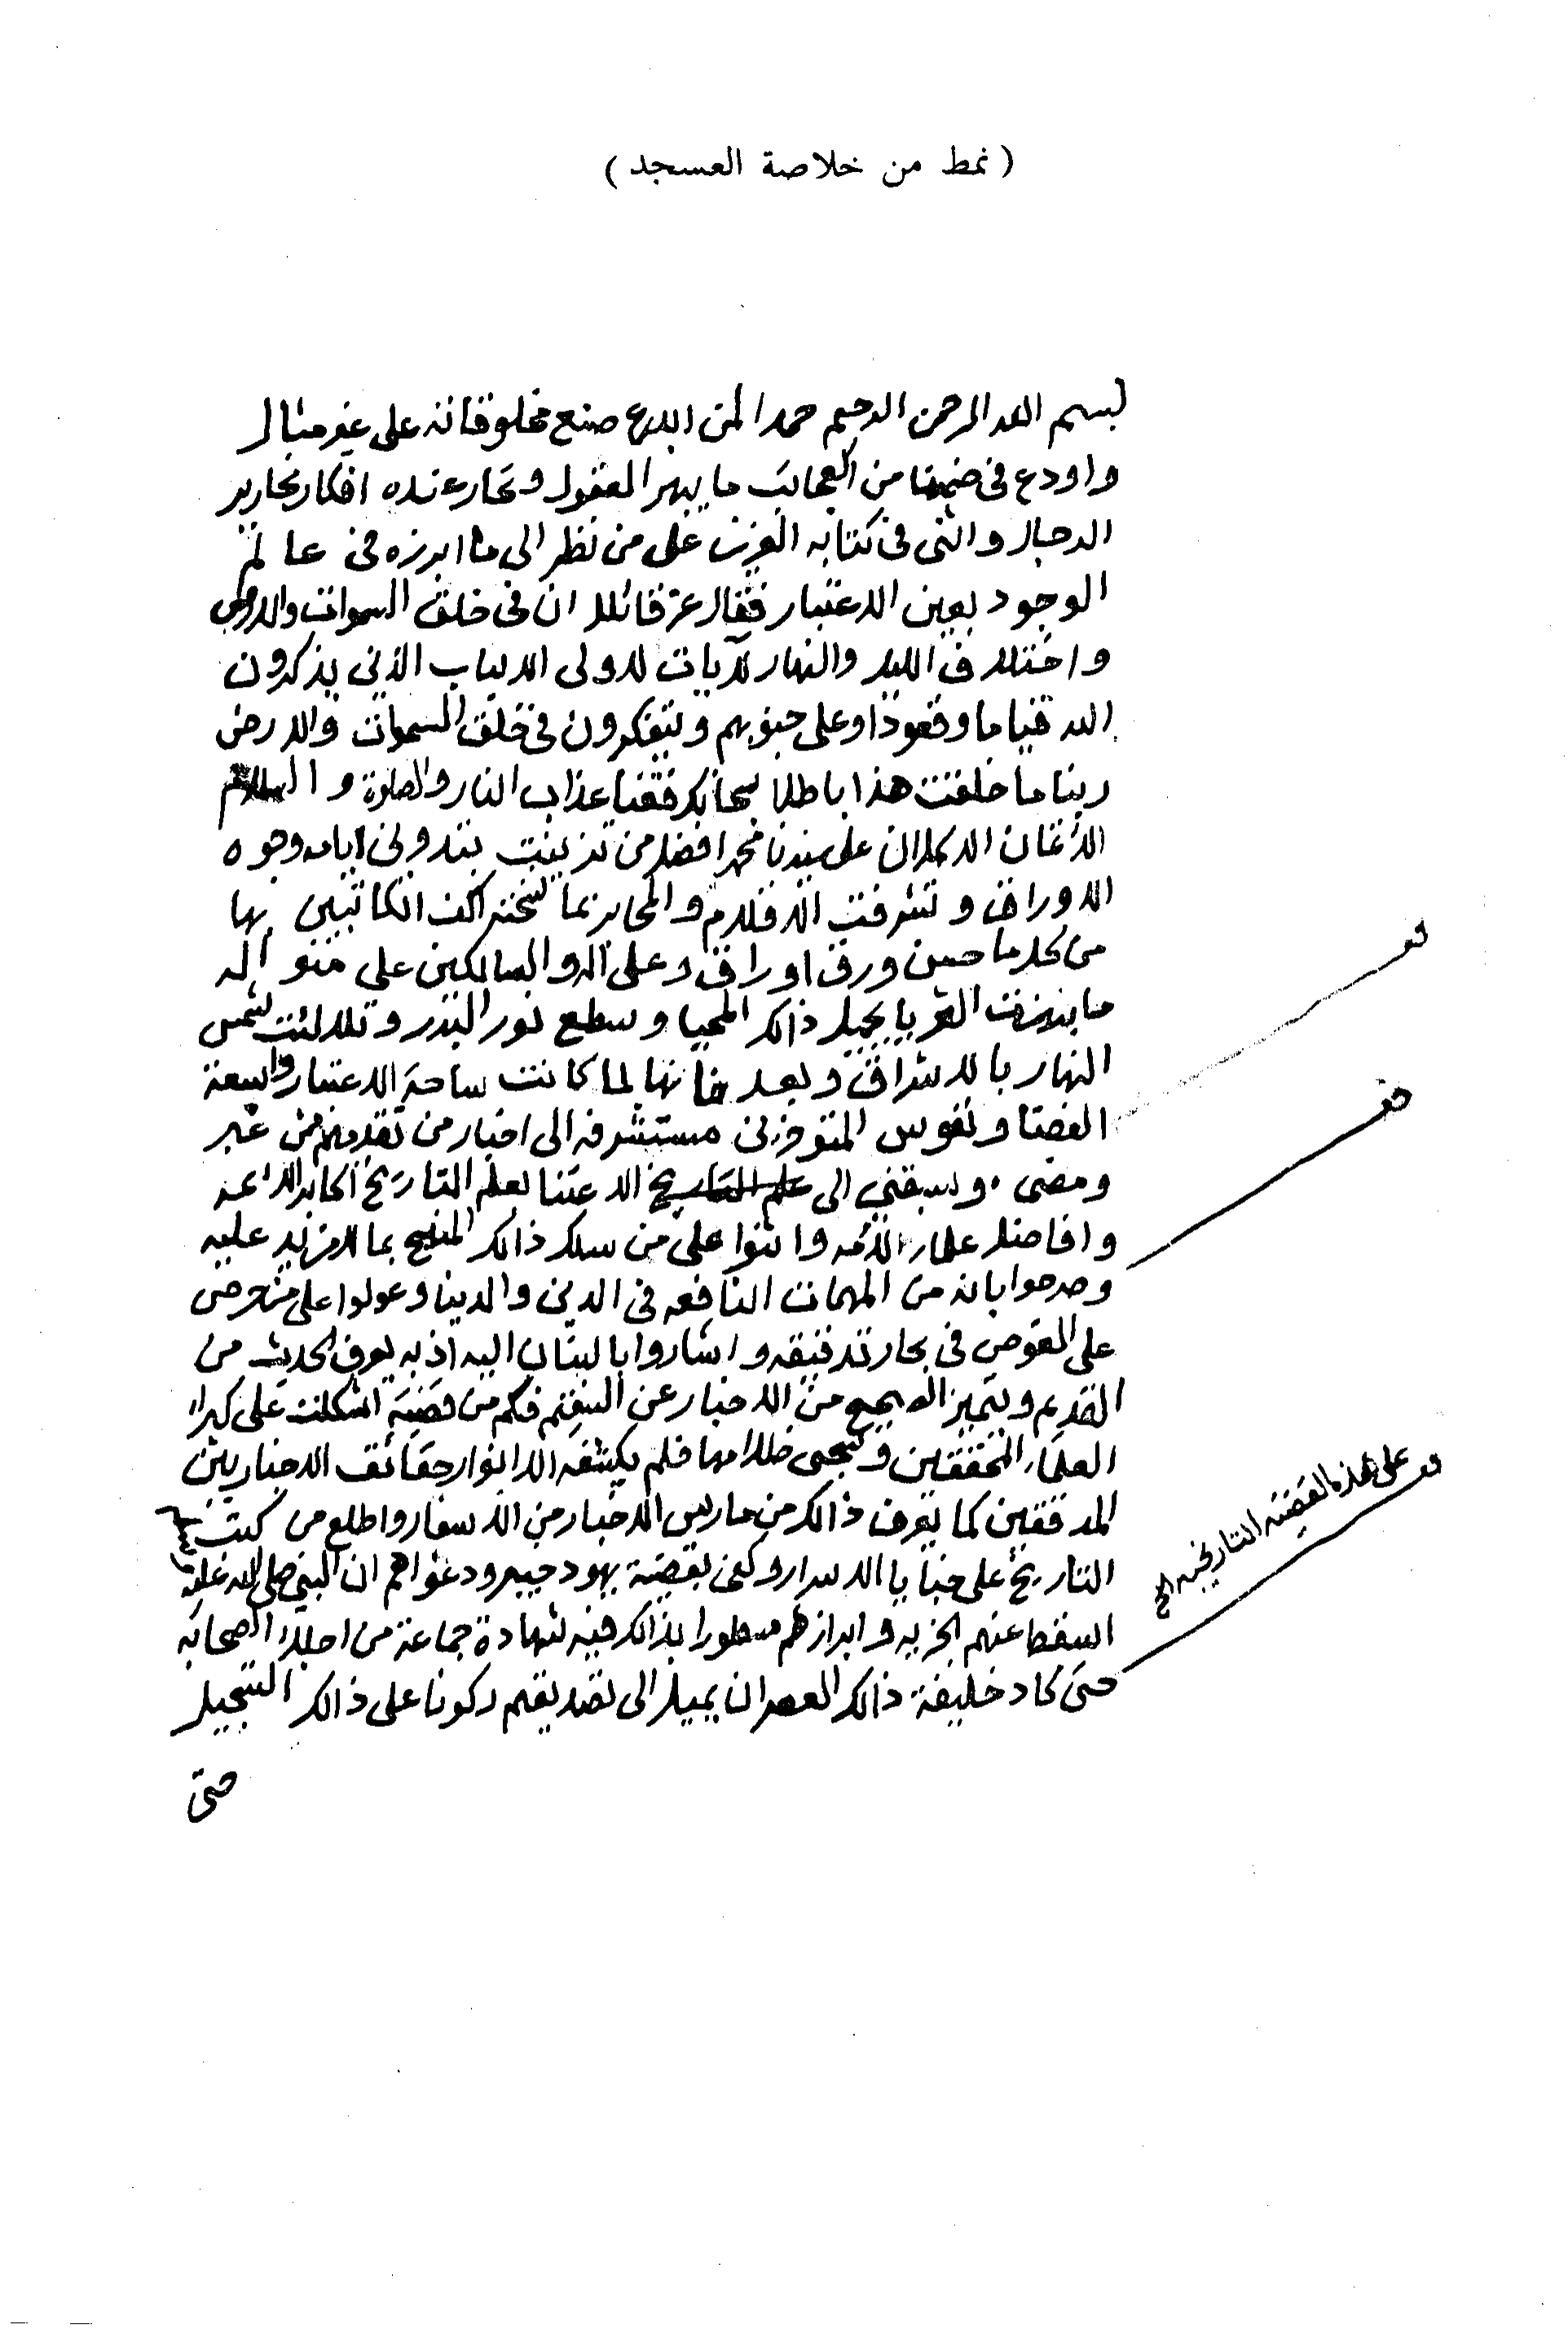 (نمط من خلاصة العسجد)
بسم الله الرحمن الرحيم حمدا لمن ابدع صنع مخلوقاته على غير مثال
واودع في ضمنها من العجائب ما يبهر العقول وتحار عنده افكار نحارير
الرجال واثنى في كتابه العزيز على من نظر الى ما ابرزه في عالم
الوجود بعين الاعتبار فقال عز قائلا ان في خلق السموات والارض
واختلاف الليل والنهار لآيات لاولى الالباب الذين يذكرون
الله قياما وقعودا وعلى جنوبهم ويتفكرون في خلق السموات والارض
ربنا ما خلقت هذا باطلا سبحانك فقنا عذاب النار والصلوة والسلام
الاتمان الاكملان على سيدنا محمد افضل من تزينت بتدوين ايامه وجوه
الاوراق وتشرفت الاقلام والمحابر بما تنخته اكف الكاتبين بها
من كل ما حسن ورق وراق وعلى آله والسالكين على منواله
ما الثريا بجيل ذالك المحيا وسطع نور البدر وتلالئت شمس
النهار بالاشراق وبعد فانها لما كانت ساحة الاعتبار واسعة
الفضا ونفوس المتوفزين مستشرفه الى اخبار من تقدمهم من غبر
ومضى وسبقني الى علم التاريخ الاعتنا بعلم التاريخ اكابر الائمه
وافاضل علماء الامه واثنوا على من سلك ذالك المنهج بما لا مزيد عليه
وصرحوا بانه من المهمات النافعه في الدين والدينا وعولوا على من حرص
على الغوص في بحار تدقيقه واشاروا بالبنان اليه اذ به يعرف الحديث من
القديم ويتميز الصحيح من الاخبار عن السقيم فكم من قضية اشكلت على كبراء
العلماء المحققين وسجى ظلامها فلم يكشفه الا انوار حقائق الاخباريين
المدققين كما يعرف ذالك من مارس الاخبار من الاسفار واطلع من كتب
التاريخ على خبايا الاسرار وكفى بقضية يهود خيبر ودعواهم ان النبي صلى الله عليه
اسقط عنهم الجزيه وابرازهم مسطورا بذالك فيه شهادة جماعة من اجلاء الصحابه
حتى كاد خليفة ذالك العصر ان يميل الى تصديقهم ركونا على ذالك التسجيل
حتى
قو
قو
قو على هذه القضيه التاريخيه الخ